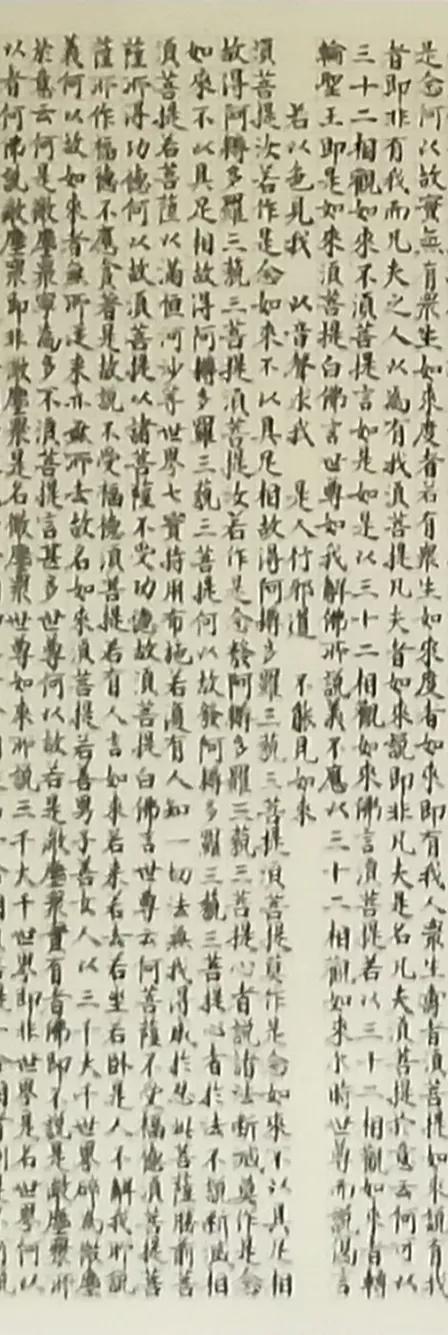 是念何以故實無有衆生如來度者若有衆生如來度者如來即有我人衆生壽者須菩提如來說有我
者即非有我而凡夫之人以為有我須菩提凡夫者如來說即非凡夫是名凡夫須菩提於意云何可以
三十二相觀如來不須菩提言如是如是以三十二相觀如來佛言須菩提若以三十二相觀如來者轉
輪聖王即是如來須菩提白佛言世尊如我解佛所說義不應以三十二相觀如來尒時世尊而說偈言
若以色見我 以音聲求我 是人行邪道 不能見如來
須菩提汝若作是念如來不以具足相故得阿耨多羅三藐三菩提須菩提莫作是念如來不以具足相
故得阿耨多羅三藐三菩提須菩提汝若作是念發阿耨多羅三藐三菩提心者說諸法斷滅莫作是念
如來不以具足相故得阿耨多羅三藐三菩提何以故發阿耨多羅三藐三菩提心者於法不說斷滅相
須菩提若菩薩以滿恒河沙等世界七寶持用布施若復有人知一切法無我得成於忍此菩薩勝前菩
薩所得功德何以故須菩提以諸菩薩不受功德故須菩提白佛言世尊云何菩薩不受福德須菩提菩
薩所作福德不應貪著是故說不受福德須菩提若有人言如來若來若去若坐若卧是人不解我所說
義何以故如來者無所從來亦無所去故名如來須菩提若善男子善女人以三千大千世界碎為微塵
於意云何是微塵衆寧為多不須菩提言甚多世尊何以故若是微塵衆實有者佛即不說是微塵衆所
以者何佛說微塵衆即非微塵衆是名微塵衆世尊如來所說三千大千世界即非世界是名世界何以